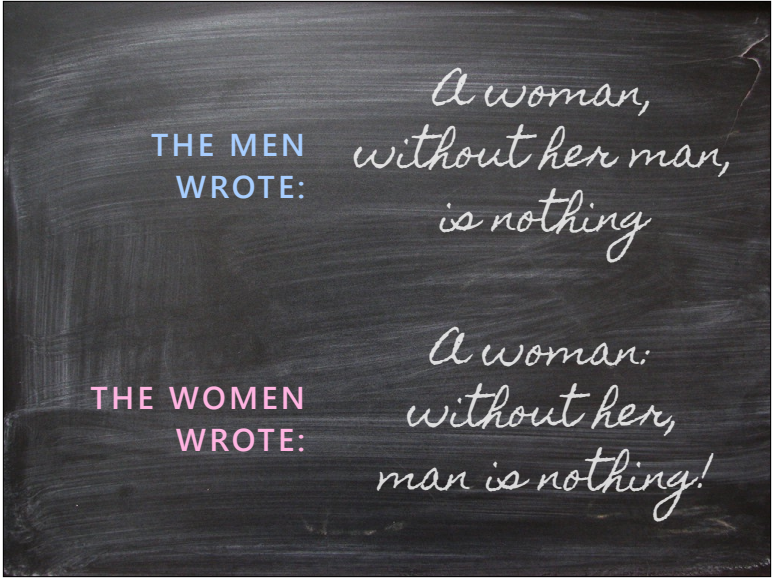 THE MEN
WROTE:
A woman,
without her man,
is nothing
THE WOMEN
WROTE:
A woman:
without her,
man is nothing!